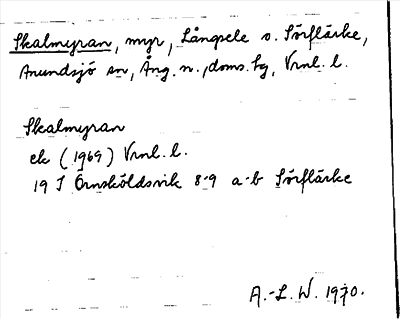 Skalmyran, myr, Långsele o. Sörflärke,
Anundsjö sn, Ång. n., doms. hg, Vrnl. l.
Skalmyran
ek (1969) Vrnl. l.
19 J Örnsköldsvik 8-9 a-b Sörflärke
A.-L. W. 1970.